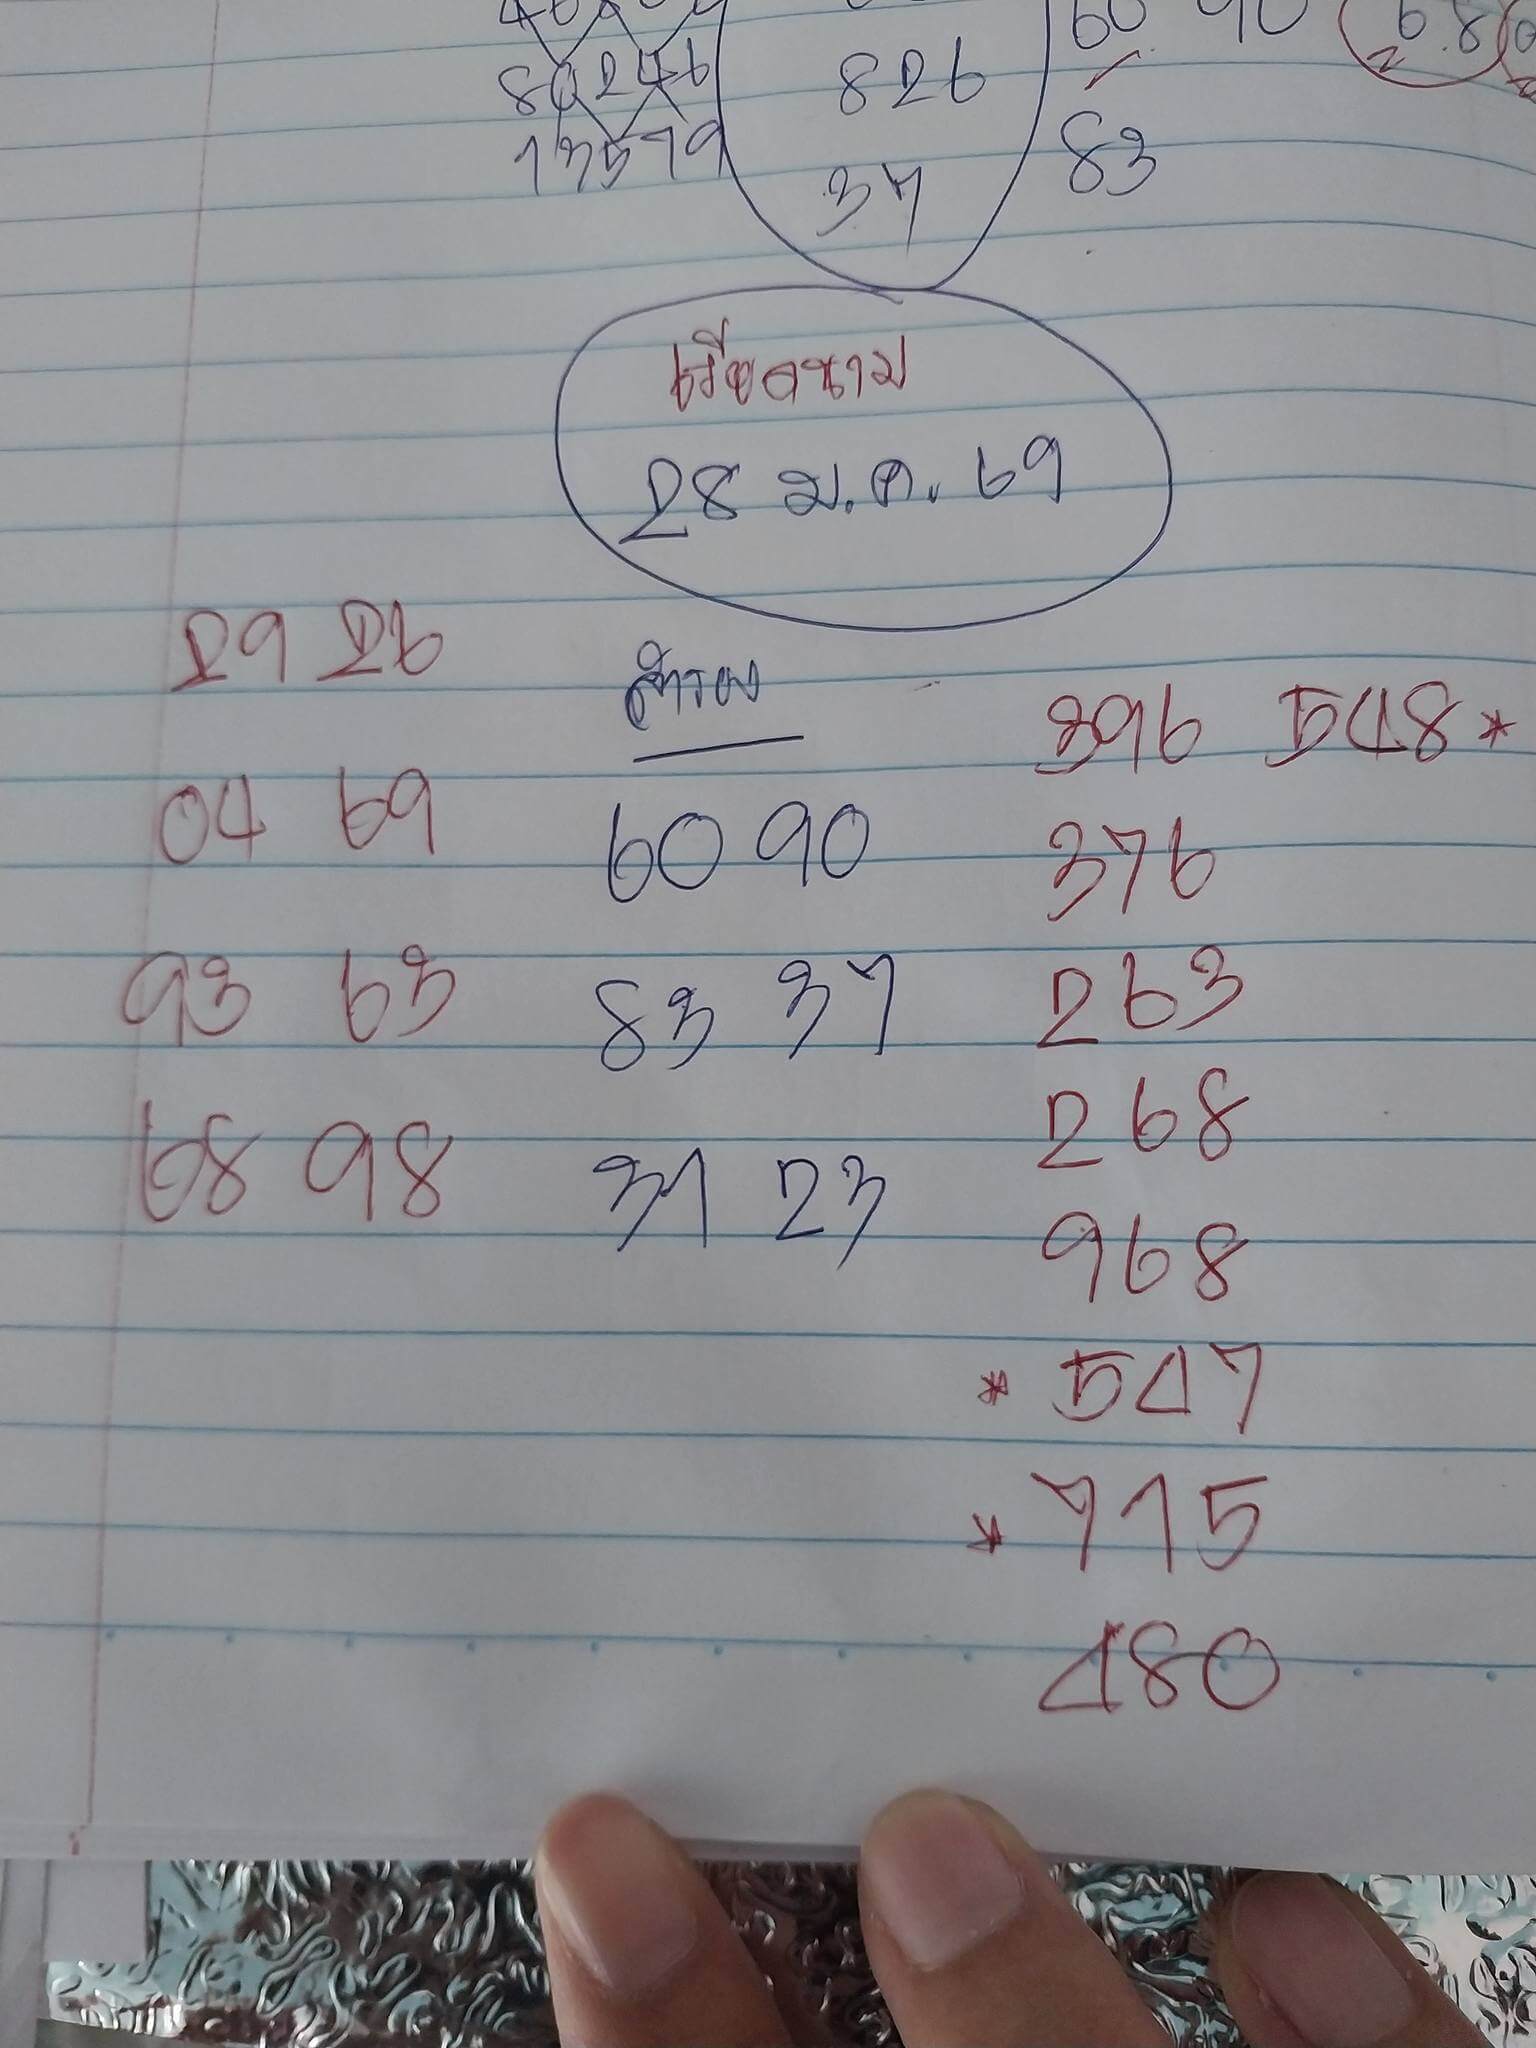 80246
826
60 90
6.8
13579
37
83
เวียดนาม
28 ม.ค. 69
29 26
สำรอง
396 548*
04 69
60 90
376
93 63
83 37
263
68 98
31 23
268
968
* 547
* 715
480